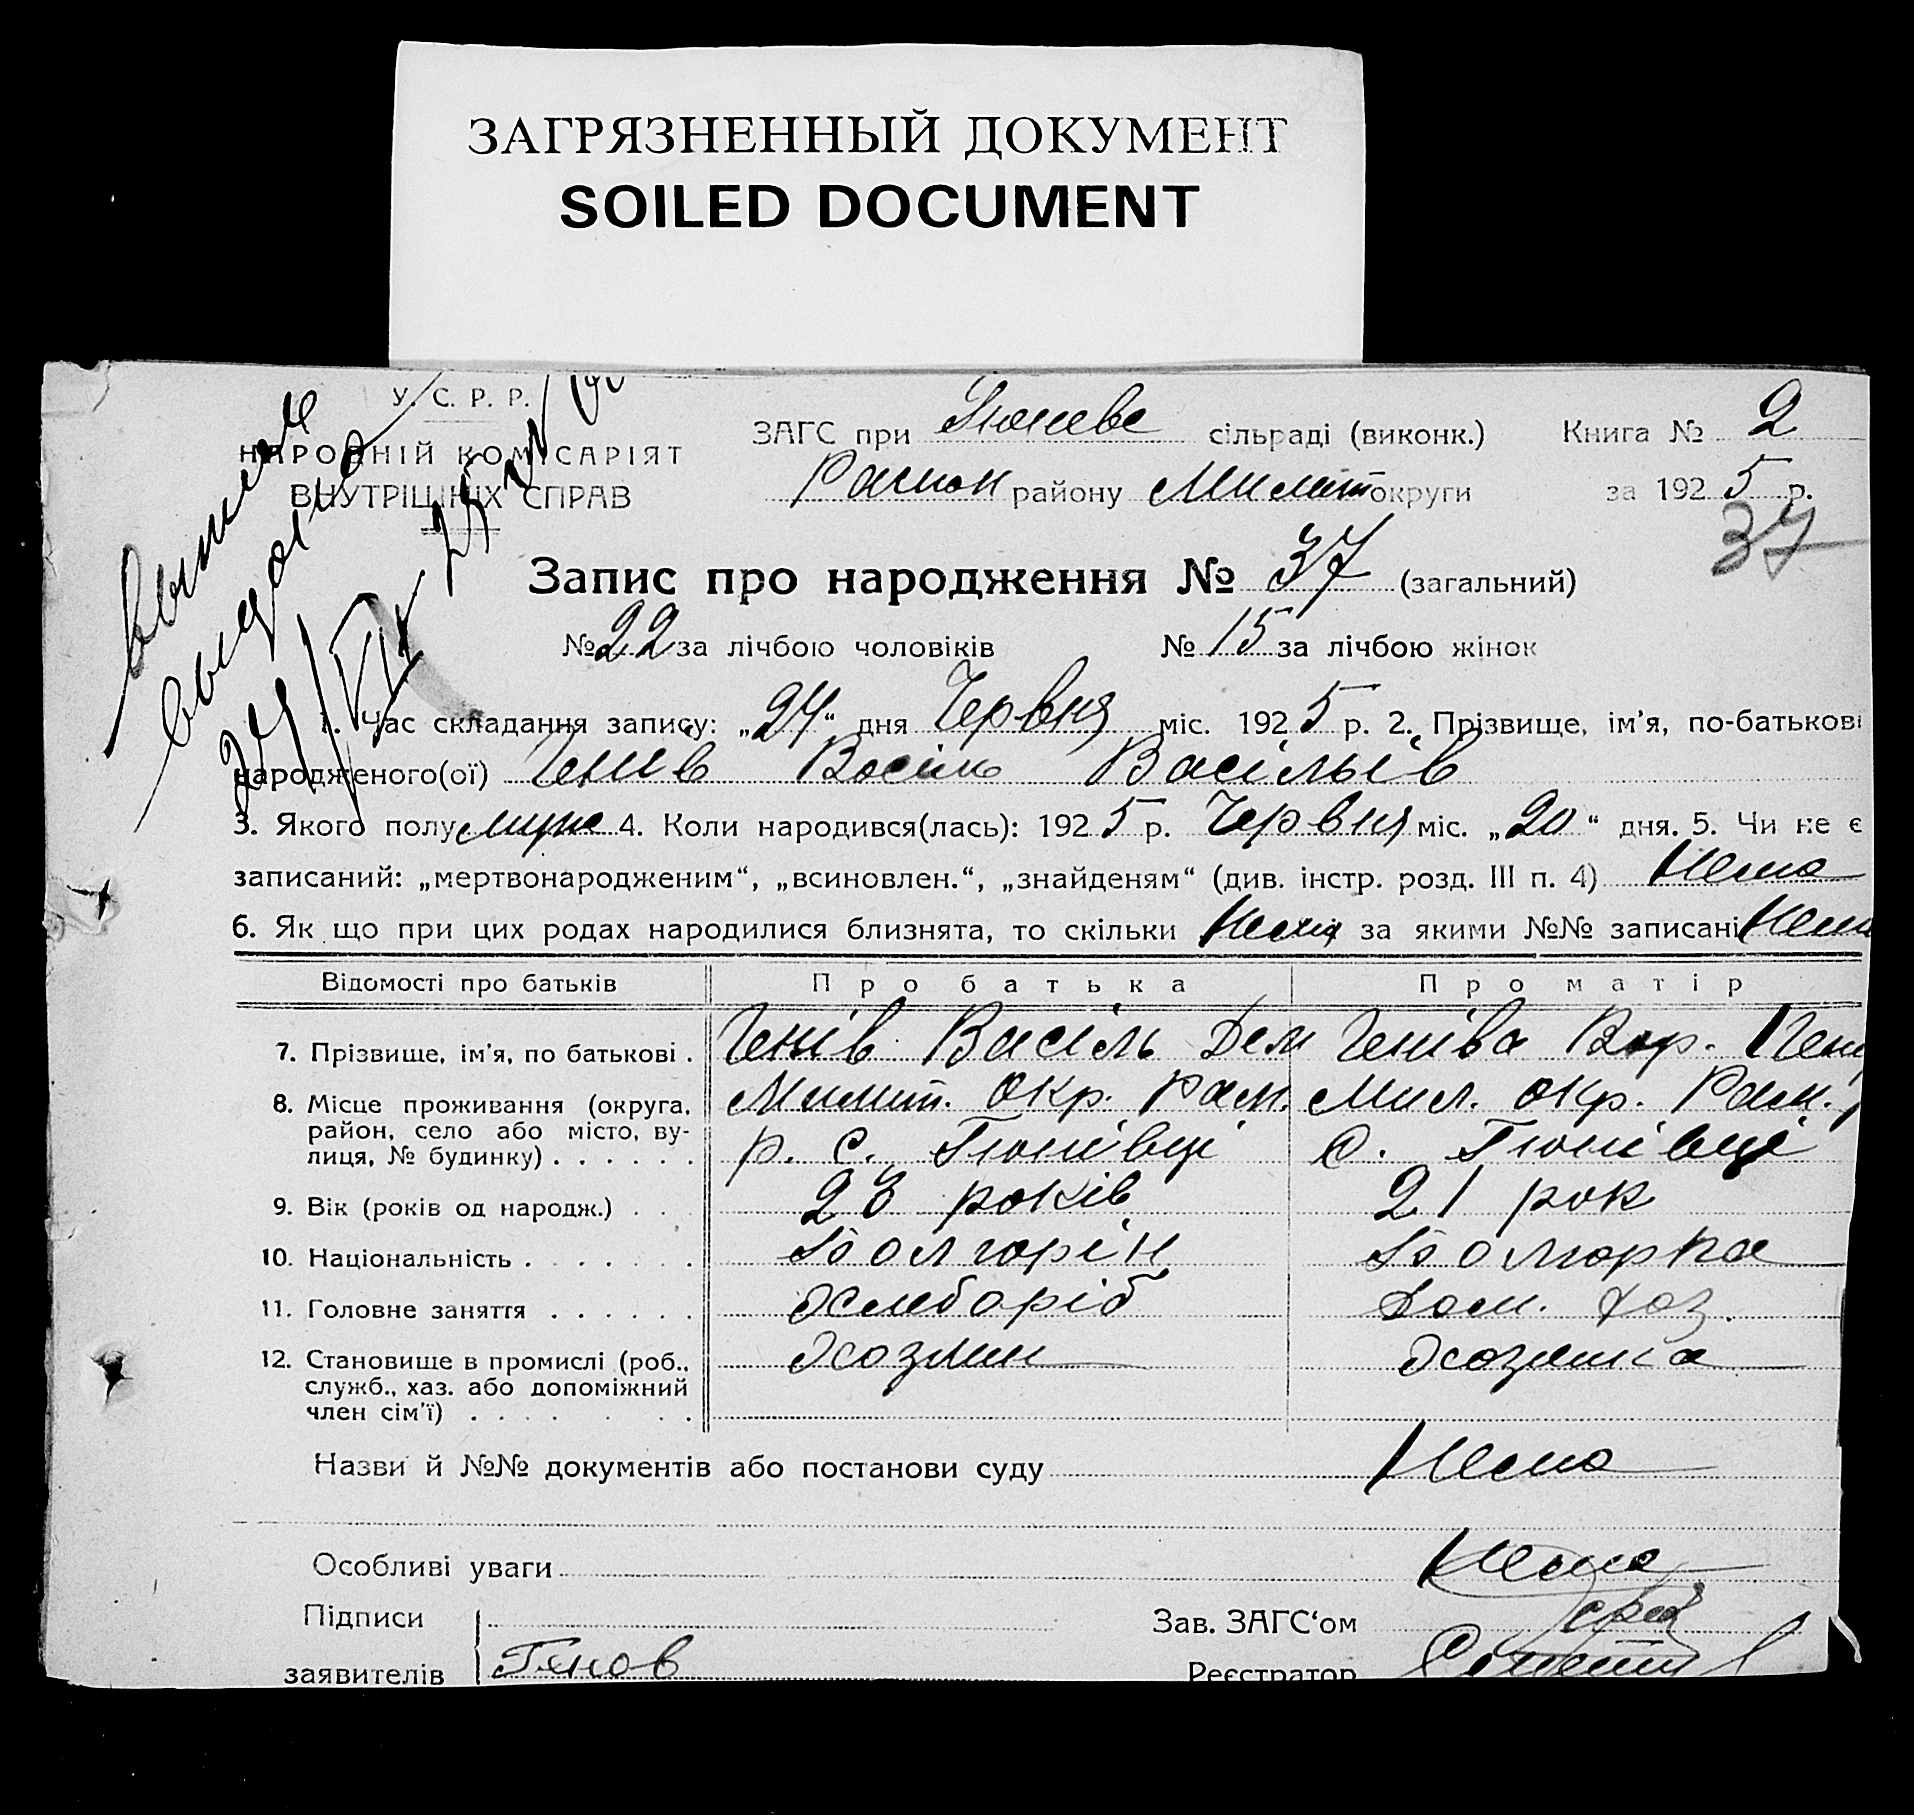 ЗАГРЯЗНЕННЫЙ ДОКУМЕНТ
SOILED DOCUMENT
У. С. Р. Р.
НАРОДНІЙ КОМІСАРІЯТ
ВНУТРІШНІХ СПРАВ
ЗАГС при сільраді (виконк.) Книга № 2
району округи за 1925 р.
37
Запис про народження № 37 (загальний)
№ 22 за лічбою чоловіків № 15 за лічбою жінок
1. Час складання запису: „24“ дня Червня міс. 1925 р. 2. Прізвище, ім'я, по-батькові
народженого(ої) Генів Васіль Васільів
3. Якого полу муж 4. Коли народився(лась): 1925 р. Червня міс. „20“ дня. 5. Чи не є
записаний: „мертвонародженим“, „всиновлен.“, „знайденям“ (див. інстр. розд. III п. 4) Нема
6. Як що при цих родах народилися близнята, то скільки Нема за якими №№ записані Нема
Відомості про батьків Про батька Про матір
7. Прізвище, ім'я, по батькові . Генів Васіль Дем Геніва Вар.
8. Місце проживання (округа, Мелит. Окр. Рам. Мил. окр. Рам.
район, село або місто, ву- р. с. Гюнівці с. Гюнівці
лиця, № будинку) . . . . . .
9. Вік (років од народж.) . . . 23 років 21 рок
10. Національність . . . . . . . Болгорін Болгорка
11. Головне заняття . . . . . . Хлеборіб Дом. хоз.
12. Становище в промислі (роб., Хозяин Хозяика
служб., хаз. або допоміжний
член сім'ї) . . . . . . .
Назви й №№ документів або постанови суду Нема
Особливі уваги Нема
Підписи Зав. ЗАГС‘ом
заявителів Генов Реєстратор